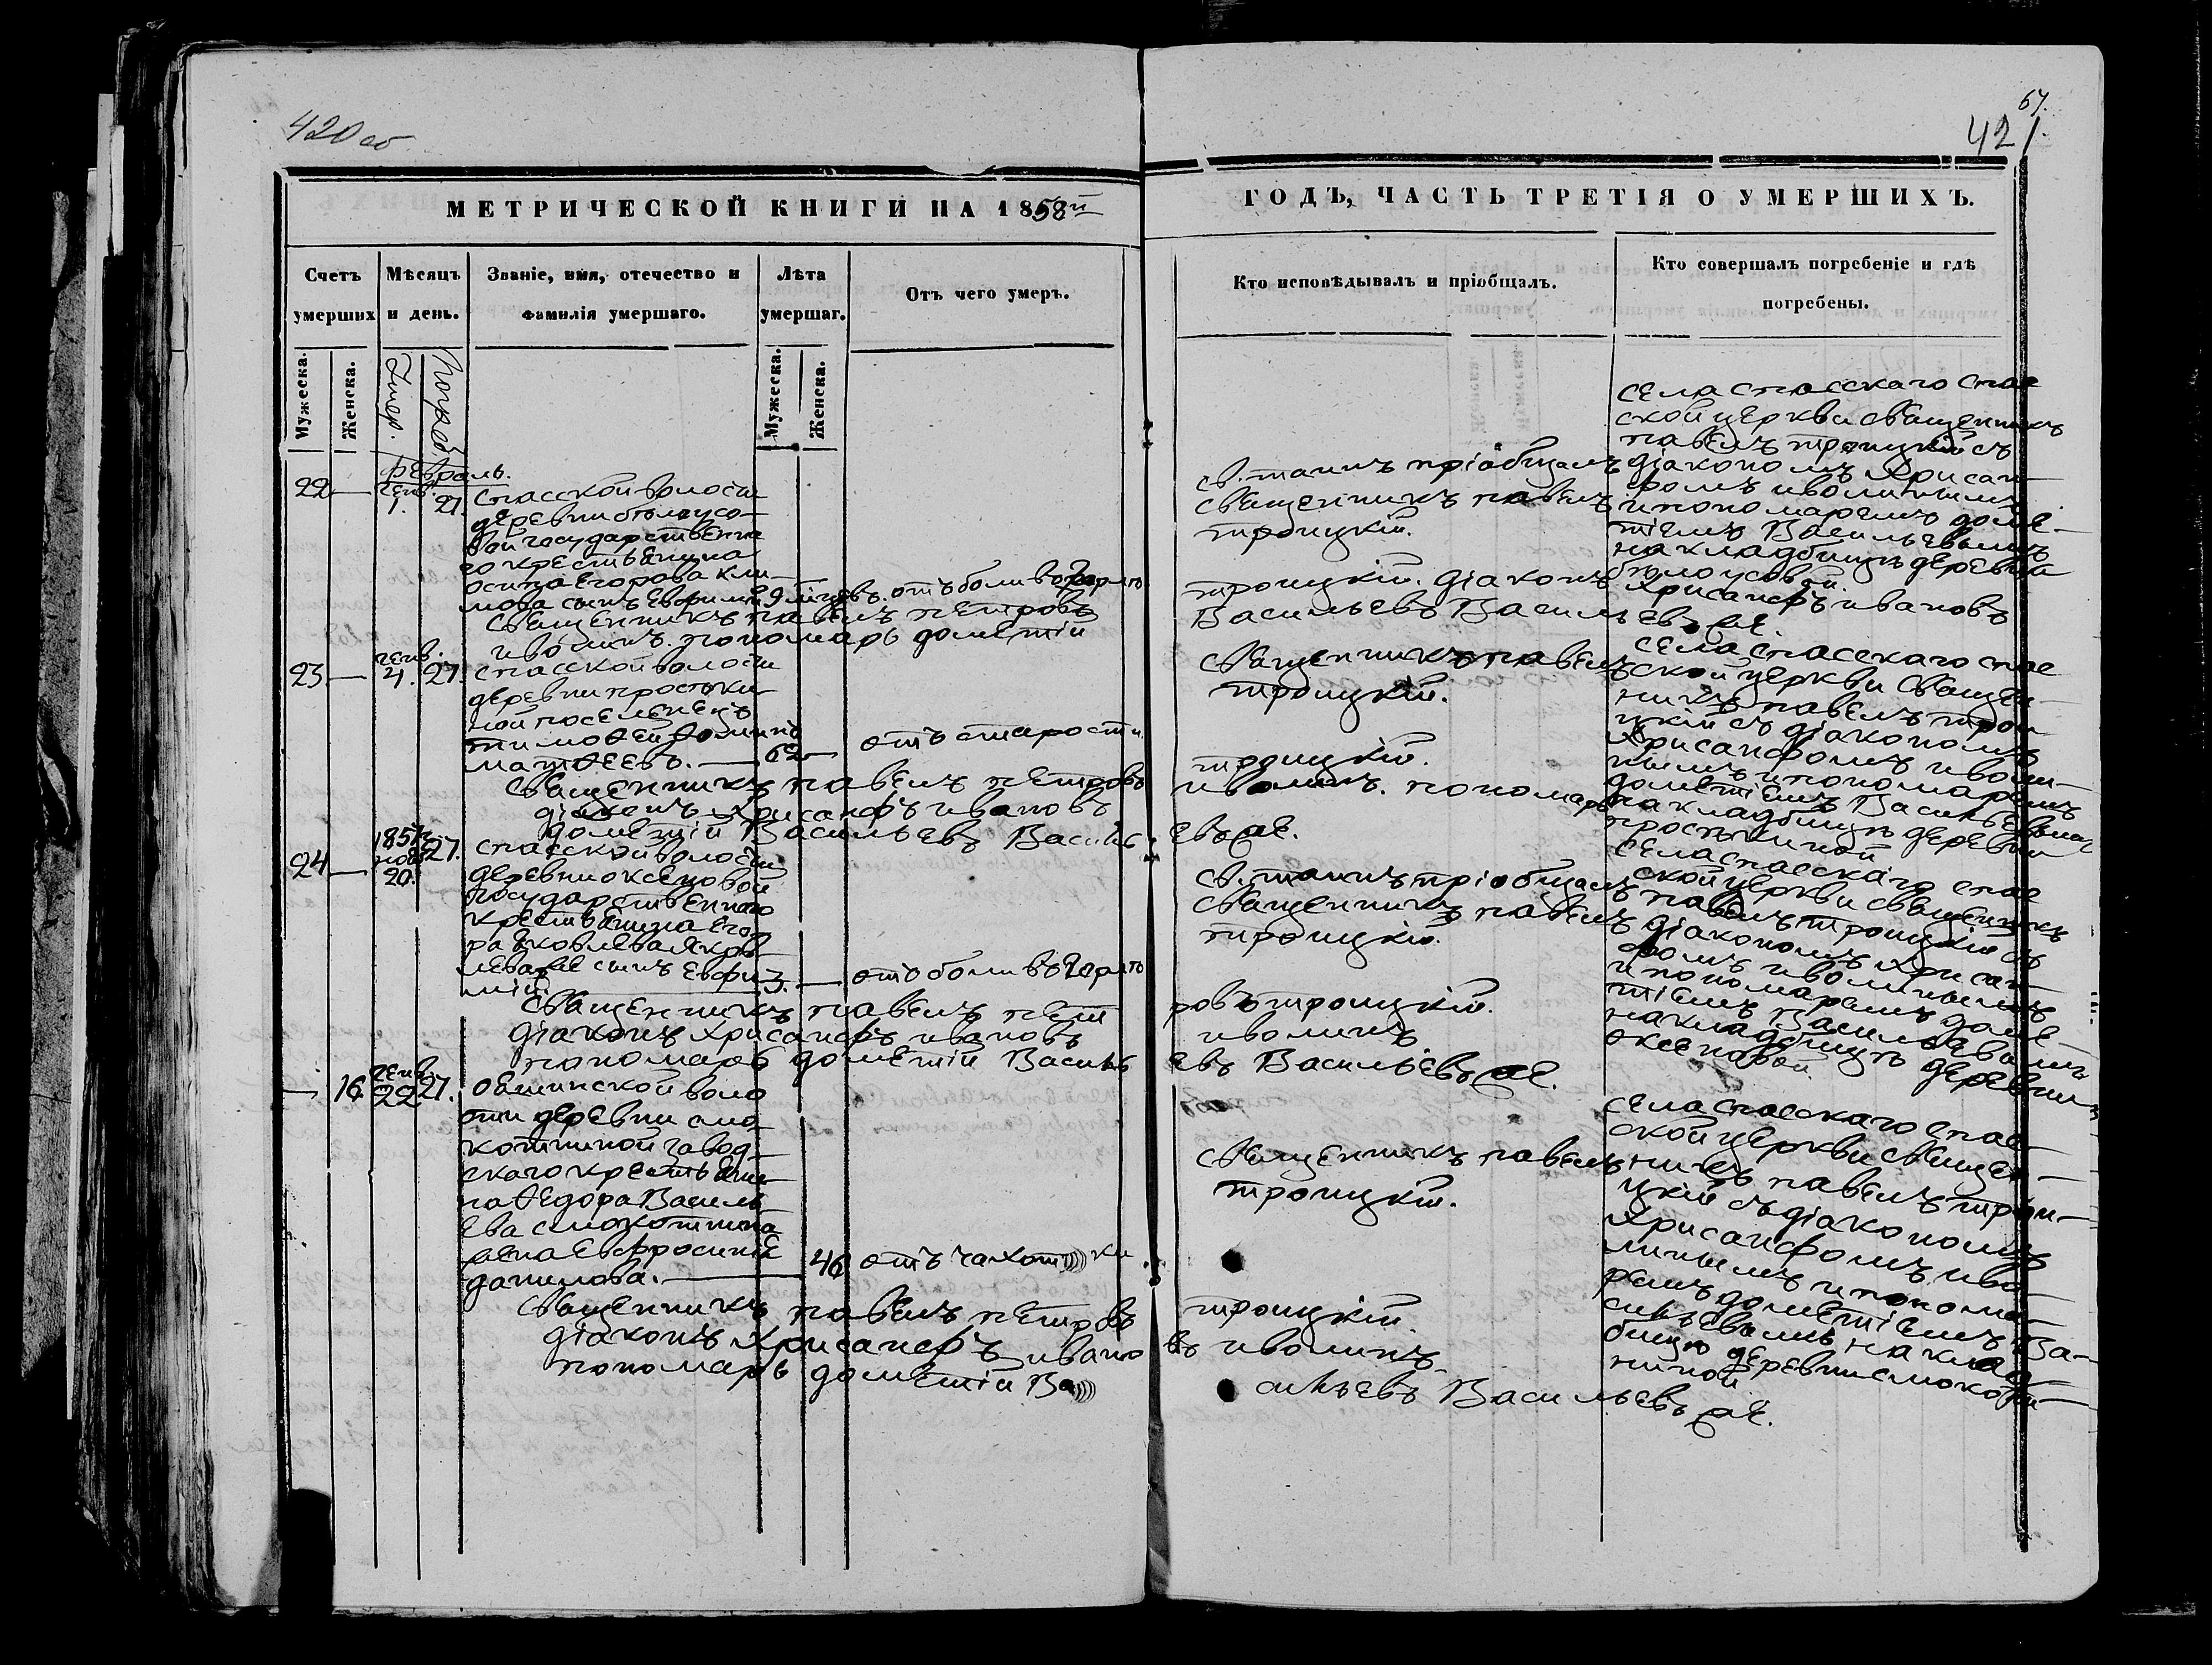 420 об
67.
421.
МЕТРИЧЕСКОЙ КНИГИ НА 1858й
ГОДЪ, ЧАСТЬ ТРЕТІЯ О УМЕРШИХЪ.
Счетъ умерших
Мѣсяцъ и день.
Званіе, имя, отечество и фамилія умершаго.
Лѣта умершаг.
Отъ чего умеръ.
Кто исповѣдывалъ и пріобщалъ.
Кто совершалъ погребеніе и гдѣ погребены.
Мужеска.
Женска.
Умер.
Погреб.
Мужеска.
Женска.
февраль.
22 — генв. 1. 21.
спасской волости
деревни бѣлоусо-
вой государственна
го крестьянина
осипа егорова кли-
мова сынъ евфимій 9 мцовъ. отъ боли въ горлѣ
св. таинъ пріобщалъ
священникъ павелъ
троицкій.
села спасскаго спас
ской церкви священникъ
павелъ троицкій съ
діакономъ хрисан-
фомъ иволинымъ
и пономаремъ доме-
тіемъ Васильевымъ
на кладбищѣ деревни
бѣлоусовой.
священникъ павелъ петровъ троицкій. діаконъ хрисанфъ ивановъ
иволинъ. пономарь дометій Васильевъ Васильевъ же.
23 — генв. 4. 27.
спасской волости
деревни простоки-
ной поселенецъ
тимоѳей ѳоминъ
матѳеевъ. — 62 — отъ старости.
священникъ павелъ
троицкій.
села спасскаго спас
ской церкви священ-
никъ павелъ трои
цкій съ діакономъ
хрисанфомъ иволи-
нымъ и пономаремъ
дометіемъ Васильевымъ
на кладбищѣ деревни
простокиной
священникъ павелъ петровъ троицкій.
діаконъ хрисанфъ ивановъ иволинъ. пономарь
дометій Васильевъ Васильевъ же.
24 — 1857 нояб 20. 27.
спасской волости
деревни оксеновой
государственнаго
крестьянина его
ра яковлева яков
лева же сынъ евфи- 3. — отъ боли въ горлѣ
мій.
св. таинъ пріобщалъ
священникъ павелъ
троицкій.
села спасскаго спас
ской церкви священникъ
павелъ троицкій съ
діакономъ хрисан-
фомъ иволинымъ
и пономаремъ доме-
тіемъ Васильевымъ
на кладбищѣ деревни
оксеновой.
священникъ павелъ петровъ троицкій.
діаконъ хрисанфъ ивановъ иволинъ
пономарь дометій Васильевъ Васильевъ же.
— 16. генв. 22 27.
воло
сти деревни смо
котиной завод-
скаго крестьяни-
на ѳедора Василь
ева смокотина
жена евфросинія
данилова. — 46 отъ чахотки
священникъ павелъ
троицкій.
села спасскаго спас-
ской церкви священ-
никъ павелъ трои-
цкій съ діакономъ
хрисанфомъ иво-
линымъ и понома-
ремъ дометіемъ Ва-
сильевымъ на клад
бищѣ деревни смокоти-
ниной
священникъ павелъ петровъ троицкій.
діаконъ хрисанфъ ивановъ иволинъ
пономарь дометій Васильевъ Васильевъ же.